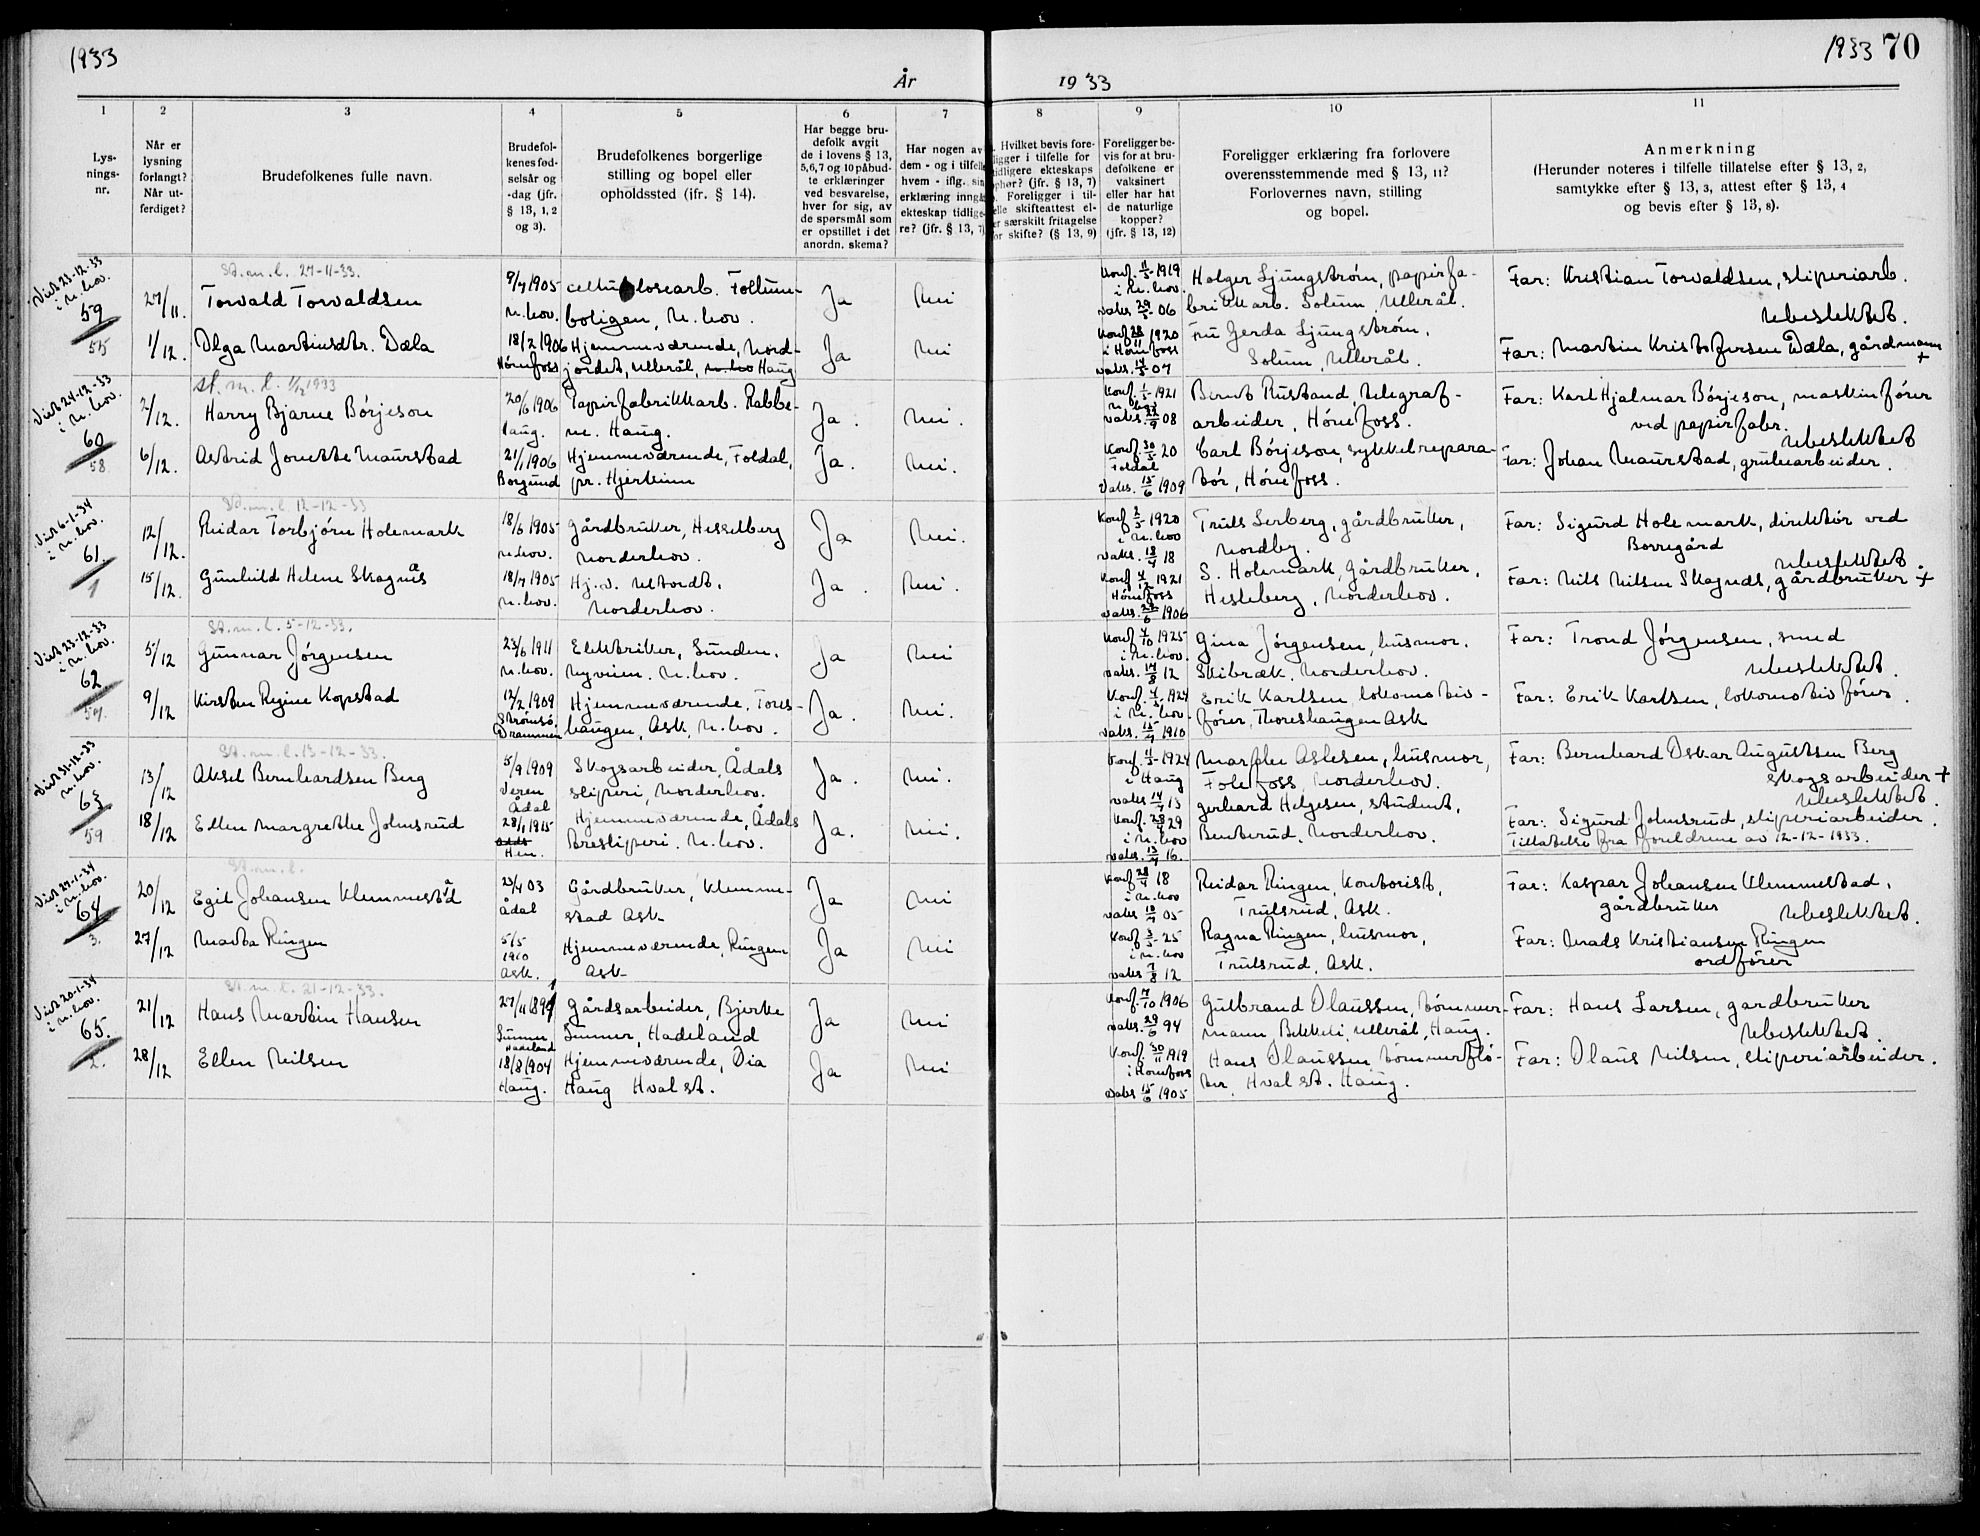 1933
År 1933
1933 70
1
2
3
4
5
6
7
8
9
10
11
Lys-
nings-
nr.
Når er
lysning
forlangt?
Når ut-
ferdiget?
Brudefolkenes fulle navn.
Brudefol-
kenes fød-
selsår og
-dag (jfr.
§ 13, 1, 2
og 3).
Brudefolkenes borgerlige
stilling og bopel eller
opholdssted (ifr. § 14).
Har begge bru-
defolk avgit
de i lovens § 13,
5,6,7 og 10 påbud-
te erklæringer
ved besvarelse,
hver for sig, av
de spørsmål som
er opstillet i det
anordn. skema?
Har nogen av
dem - og i tilfelle
hvem - iflg. sin
erklæring inngå
ekteskap tidlige-
re? (jfr. § 13, 7)
. Hvilket bevis fore-
ligger i tilfelle for
tidligere ekteskaps
ophør? (jfr. § 13, 7)
. Foreligger i til-
felle skifteattest el-
er særskilt fritagelse
or skifte? (§ 13, 9)
Foreligger be-
vis for at bru-
defolkene er
vaksinert
eller har hat
de naturlige
kopper?
(jfr. § 13, 12)
Foreligger erklæring fra forlovere
overensstemmende med § 13, 11?
Forlovernes navn, stilling
og bopel.
Anmerkning
(Herunder noteres i tilfelle tillatelse efter § 13, 2,
samtykke efter § 13, 3, attest efter § 13, 4
og bevis efter § 13, 8).
Viet 23-12-33
i N. hov.
59
55
St. m. l. 27-11-33.
27/11.
Torvald Torvaldsen
9/7 1905
N. hov.
cellulosearb. Follum-
boligen, N. hov.
Ja
Nei
Konf. 11/5-1919
i N. hov.
vaks. 29/5-06
Holger Ljungström, papirfa-
brikkarb. Solum, Ullerål.
Far: Kristian Torvaldsen, sliperiarb.
Ubeslektet.
1/12.
Olga Martinsdtr. Dæla
18/2 1906
Hønefoss
Hjemmeværende, Nord-
jordet, Ullerål, Haug
Ja
Nei
1920
i Hønefoss
vaks. 07
Fru Gerda Ljungström,
Solum, Ullerål.
Far: Martin Kristofersen Dæla, gårdmann
+
Viet 24-12-33
i N. hov.
60
58.
st. m. l. 1/12 1933
2/12.
Harry Bjarne Börjeson
20/6 1906
Haug.
Papirfabrikkarb. Rabbe-
ne. Haug.
Ja.
Nei.
Konf. 1/5-1921
N. hov
vaks. 08
Bernt Rustand, telegraf-
arbeider, Hönefoss.
Far: Karl Hjalmar Börjeson, maskinfører
ved papirfabr.
Ubeslektet
6/12.
Astrid Jonette Maurstad
21/1 1906
Borgund
Hjemmeværende, Foldal,
pr. Hjerkinn
Ja.
Nei.
Konf. 30/5 20
Foldal
Vaks. 15/6 1909
Carl Börjeson, sykkelrepara-
tör, Hönefoss.
Far: Johan Maurstad, grubearbeider.
Viet 6-1-34
i N. hov.
61.
1
St. m. l 12-12-33
12/12.
Reidar Torbjörn Holemark
18/6 1905
N. hov.
Gårdbruker, Hesselberg
Norderhov.
Ja
Nei.
Konf. 2/5-1920
i N. hov
vaks. 18/7 18
Truls Serberg, gårdbruker,
Nordby.
Far: Sigurd Holemark, direktör ved
Borregård
Ubeslektet.
15/12.
Gunhild Helene Skagnæs
18/7 1905
N. hov.
Hj. v. Ultvedt,
Norderhov.
Ja.
Nei.
Konf. 4/12 1921
Hønefoss
vaks. 1906
S. Holemark, gårdbruker,
Hesleberg, Norderhov.
Far: Nils Nilsen Skagnæs, gårdbruker +
Viet 23-12-33
i N. hov.
62
57.
St. m. l. 5-12-33.
5/12
Gunnar Jörgensen
23/6 1911
N. hov.
Elektriker, Sunden.
Nyveien. N. hov.
Ja
Nei
Konf. 4/10 1925
i N. hov.
vaks. 14/8 12
Gina Jörgensen, husmor.
Skibræk, Norderhov.
Far: Trond Jörgensen, smed
Ubeslektet.
9/12
Kirsten Regine Kopstad
12/2 1909
Strømsø,
Drammen
Hjemmeværende, Tores-
haugen, Ask, N. hov.
Ja.
Nei.
Konf. 4/5-1924
i N. hov.
vaks. 15/9 1910
Erik Karlsen, lokomotiv-
förer, Thoreshaugen Ask
Far: Erik Karlsen, lokomotivförer.
Viet 31-12-33
N. hov.
63
59.
St. m. l. 13-12-33.
13/12
Aksel Bernhardsen Berg
5/9 1909
Veren
Ådal
Skogsarbeider, Ådals
sliperi, Norderhov.
Ja.
Nei.
Konf. 4/5-1924
i Haug
vaks 14/7 13
Marthe Aslesen, husmor,
Follefoss, Norderhov.
Far: Bernhard Oskar Augustsen Berg
skogsarbeider +
Ubeslektet.
18/12
Ellen Margrethe Johnsrud
28/1 1915
Hen.
Hjemmeværende, Ådals
tresliperi. N. hov.
Ja.
Nei.
Konf. 28/4 29
i N. hov
vaks. 13/7 16.
Gerhard Helgesen, student,
Benterud, Norderhov.
Far: Sigurd Johnsrud, sliperiarbeider.
Tillatelse fra foreldrene av 12-12-1933.
Viet 27-1-34
i N. hov.
64
3.
St. m. l.
20/12
Egil Johansen Klemmestad
23/4 03
Ådal
Gårdbruker, Klemme-
stad Ask
Ja
Nei
Konf. 28/4 18
i N. hov
vaks 10/7 05
Reidar Ringen, kontorist,
Trulsrud, Ask.
Far: Kaspar Johansen Klemmestad,
gårdbruker
Ubeslektet.
27/12
Marta Ringen
5/5
1910
Ask.
Hjemmeværende, Ringen
Ask
Ja
Nei
Konf. 3/5-25
i N. hov
vaks 7/8 12
Ragna Ringen, husmor,
Trulsrud, Ask.
Far: Mads Kristiansen Ringen
ordförer
Viet 20-1-34
i N. hov.
65.
2.
St. m. l. 21-12-33.
21/12
Hans Martin Hansen
Gunner
Hadeland
Gårdsarbeider, Bjerke
Gunner, Hadeland
Ja
Nei
Konf. 7/10 1906
vaks. 29/6 94
Gulbrand Olaussen, tömmer-
mann, Bekkeli, Ullerål, Haug.
Far: Hans Larsen, gardbruker
Ubeslektet.
28/12
Ellen Nilsen
18/8 1904
Haug.
Hjemmeværende, Dia
Haug Hval st.
Ja
Nei
Konf. 30/11 1919
i Hønefoss
vaks 15/6 1905
Hans Olaussen, tömmerflö-
ter, Hval st. Haug.
Far: Olaus Nilsen, sliperiarbeider.